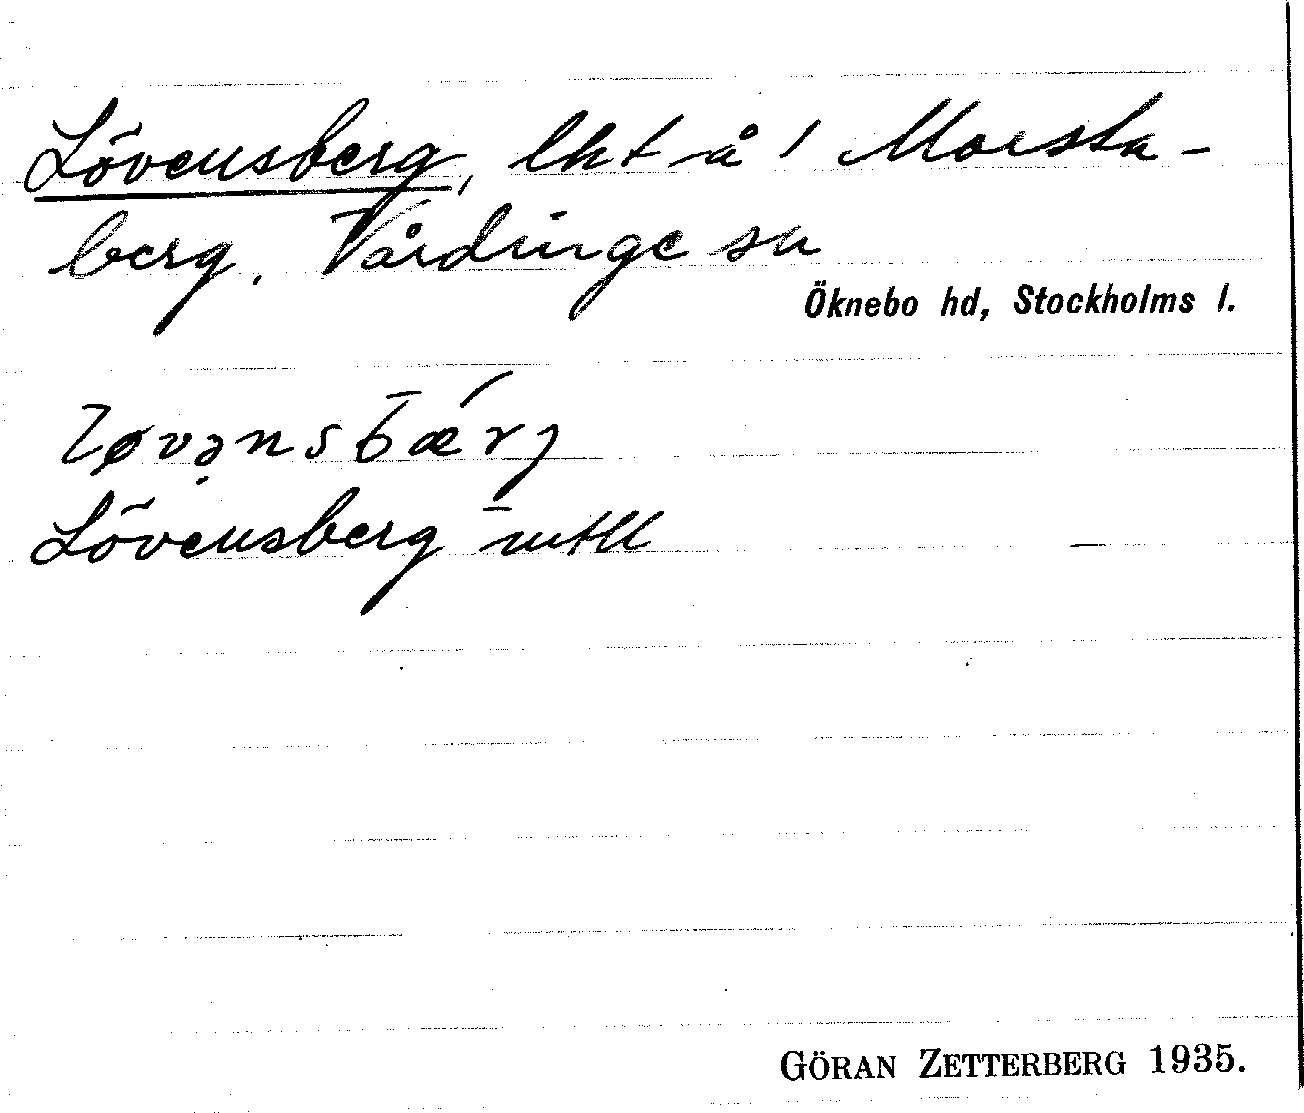 Lövensberg, lht å 1 Morsta-
berg. Vårdinge sn
Öknebo hd, Stockholms l.
løvənsbærj
Lövensberg mtll
GÖRAN ZETTERBERG 1935.